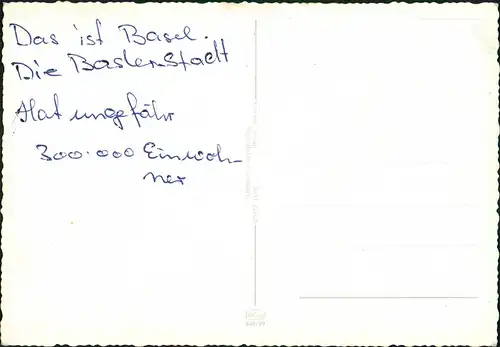 Das ist Basel.
Die Baslerstadt
Hat ungefähr
300.000 Einwoh-
ner